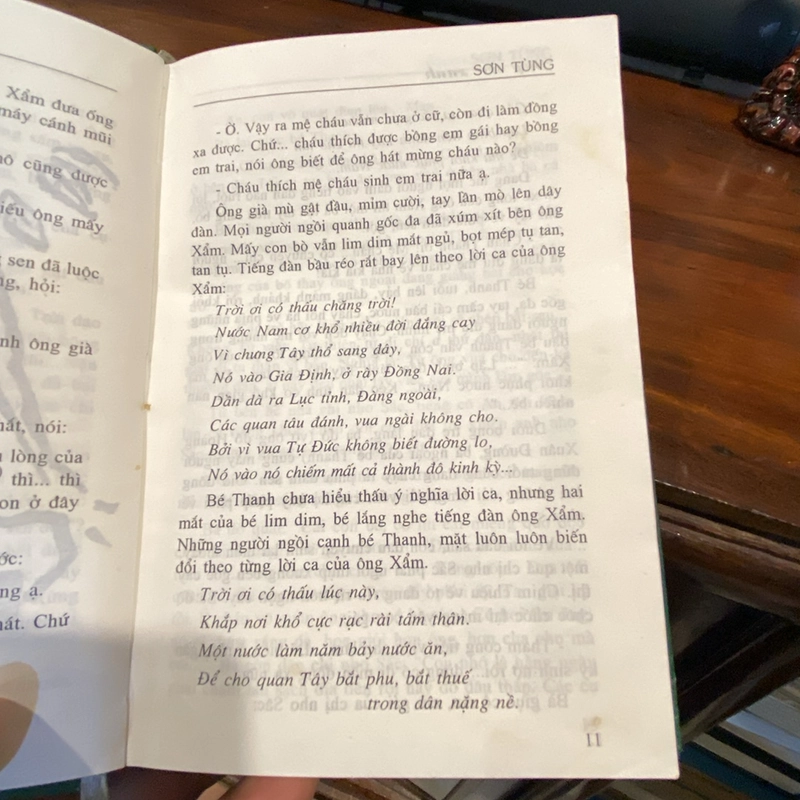 Xẩm đưa ống
mấy cánh mũi
cũng được
ông mấy
sen đã luộc
hỏi:
ông già
nói:
lòng của
thì... thì
ở đây
ạ.
Chứ
SƠN TÙNG
- Ờ. Vậy ra mệ cháu vẫn chưa ở cữ, còn đi làm đồng
xa được. Chứ... cháu thích được bồng em gái hay bồng
em trai, nói ông biết để ông hát mừng cháu nào?
- Cháu thích mệ cháu sinh em trai nữa ạ.
Ông già mù gật đầu, mỉm cười, tay lần mò lên dây
đàn. Mọi người ngồi quanh gốc đa đã xúm xít bên ông
Xẩm. Mấy con bò vẫn lim dim mắt ngủ, bọt mép tụ tan,
tan tụ. Tiếng đàn bầu réo rắt bay lên theo lời ca của ông
Xẩm:
Trời ơi có thấu chăng trời!
Nước Nam cơ khổ nhiều đời đắng cay
Vì chưng Tây thổ sang đây,
Nó vào Gia Định, ở rày Đồng Nai.
Dần dà ra Lục tỉnh, Đàng ngoài,
Các quan tâu đánh, vua ngài không cho.
Bởi vì vua Tự Đức không biết đường lo,
Nó vào nó chiếm mất cả thành đô kinh kỳ...
Bé Thanh chưa hiểu thấu ý nghĩa lời ca, nhưng hai
mắt của bé lim dim, bé lắng nghe tiếng đàn ông Xẩm.
Những người ngồi cạnh bé Thanh, mặt luôn luôn biến
đổi theo từng lời ca của ông Xẩm.
Trời ơi có thấu lúc này,
Khắp nơi khổ cực rạc rài tấm thân.
Một nước làm năm bảy nước ăn,
Để cho quan Tây bắt phu, bắt thuế
trong dân nặng nề.
11